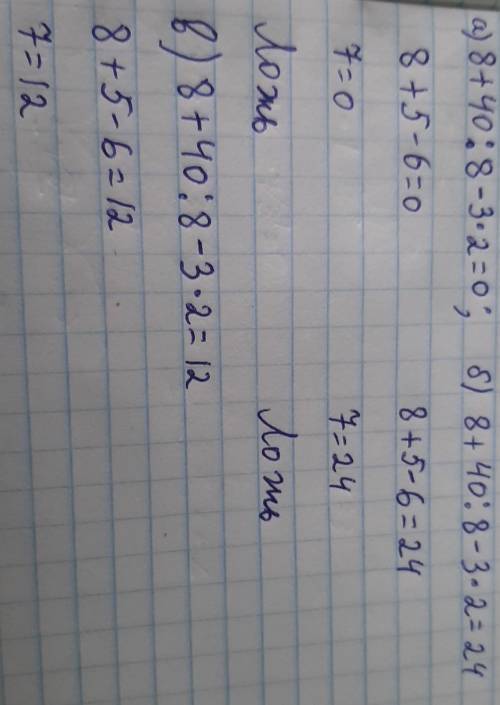 а) 8+40:8-3·2=0; б) 8+40:8-3·2=24
8+5-6=0 8+5-6=24
7=0 7=24
Ложь Ложь
в) 8+40:8-3·2=12
8+5-6=12
7=12